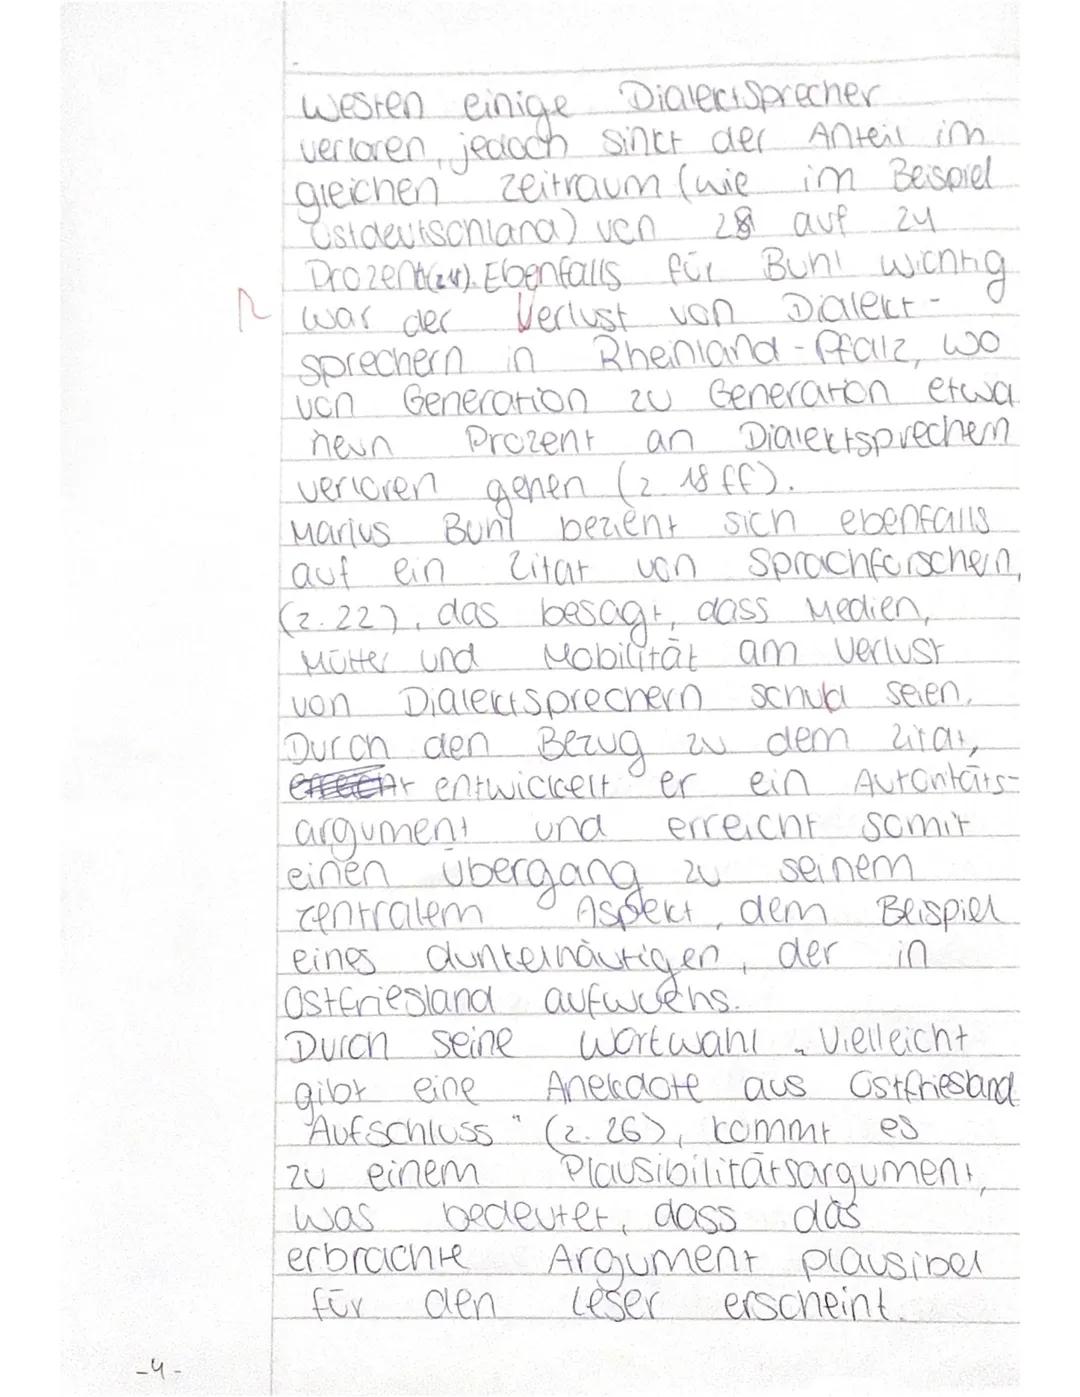 Westen einige Dialektsprecher
verloren, jedoch sinkt der Anteil im
gleichen Zeitraum (wie im Beispiel
Ostdeutschland) von 28 auf 24
Prozent(24). Ebenfalls für Buhl wichtig
R war der Verlust von Dialekt-
sprechern in Rheinland-Pfalz, wo
von Generation zu Generation etwa
neun Prozent an Dialektsprechern
verloren gehen (z. 18 ff).
Marius Buhl bezieht sich ebenfalls
auf ein Zitat von Sprachforschern,
(z. 22), das besagt, dass Medien,
Mütter und Mobilität am Verlust
von Dialektsprechern schuld seien.
Durch den Bezug zu dem Zitat,
entwickelt er ein Autoritäts-
argument und erreicht somit
einen Übergang zu seinem
zentralem Aspekt, dem Beispiel
eines dunkelhäutigen, der in
Ostfriesland aufwuchs.
Durch seine Wortwahl „Vielleicht
gibt eine Anekdote aus Ostfriesland
Aufschluss" (z. 26), kommt es
zu einem Plausibilitätsargument,
was bedeutet, dass das
erbrachte Argument plausibel
für den Leser erscheint.
-4-